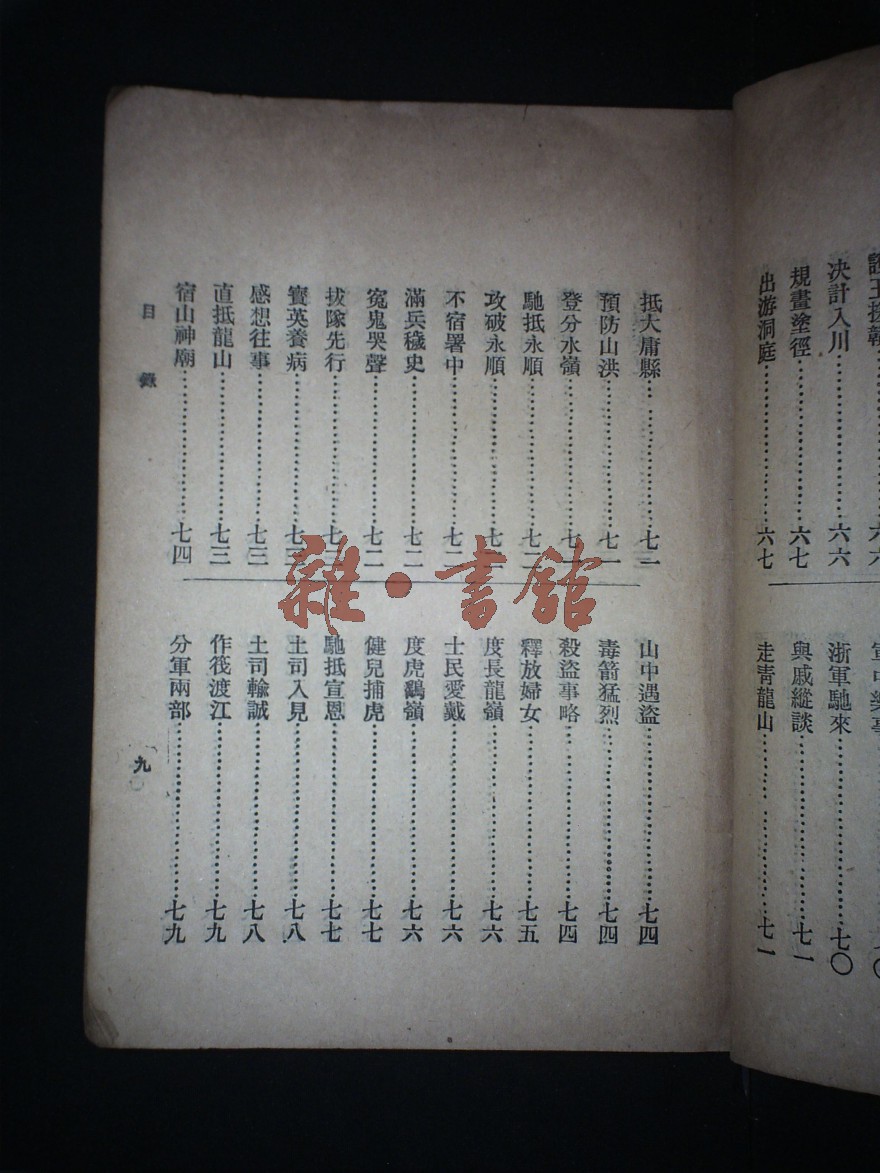 決計入川……六六
規畫塗徑……六七
出游洞庭……六七
浙軍馳來……七〇
與戚縱談……七一
走靑龍山……七一
抵大庸縣……七一
預防山洪……七一
登分水嶺……七
馳抵永順……七
攻破永順……七
不宿署中……七二
滿兵穢史……七二
寃鬼哭聲……七二
拔隊先行……七
寳英養病……七
感想往事……七三
直抵龍山……七三
宿山神廟……七四
山中遇盜……七四
毒箭猛烈……七四
殺盜事略……七四
釋放婦女……七五
度長龍嶺……七六
士民愛戴……七六
度虎鷂嶺……七六
健兒捕虎……七七
馳抵宣恩……七七
土司入見……七八
土司輸誠……七八
作筏渡江……七九
分軍兩部……七九
目錄
九
雜·書館